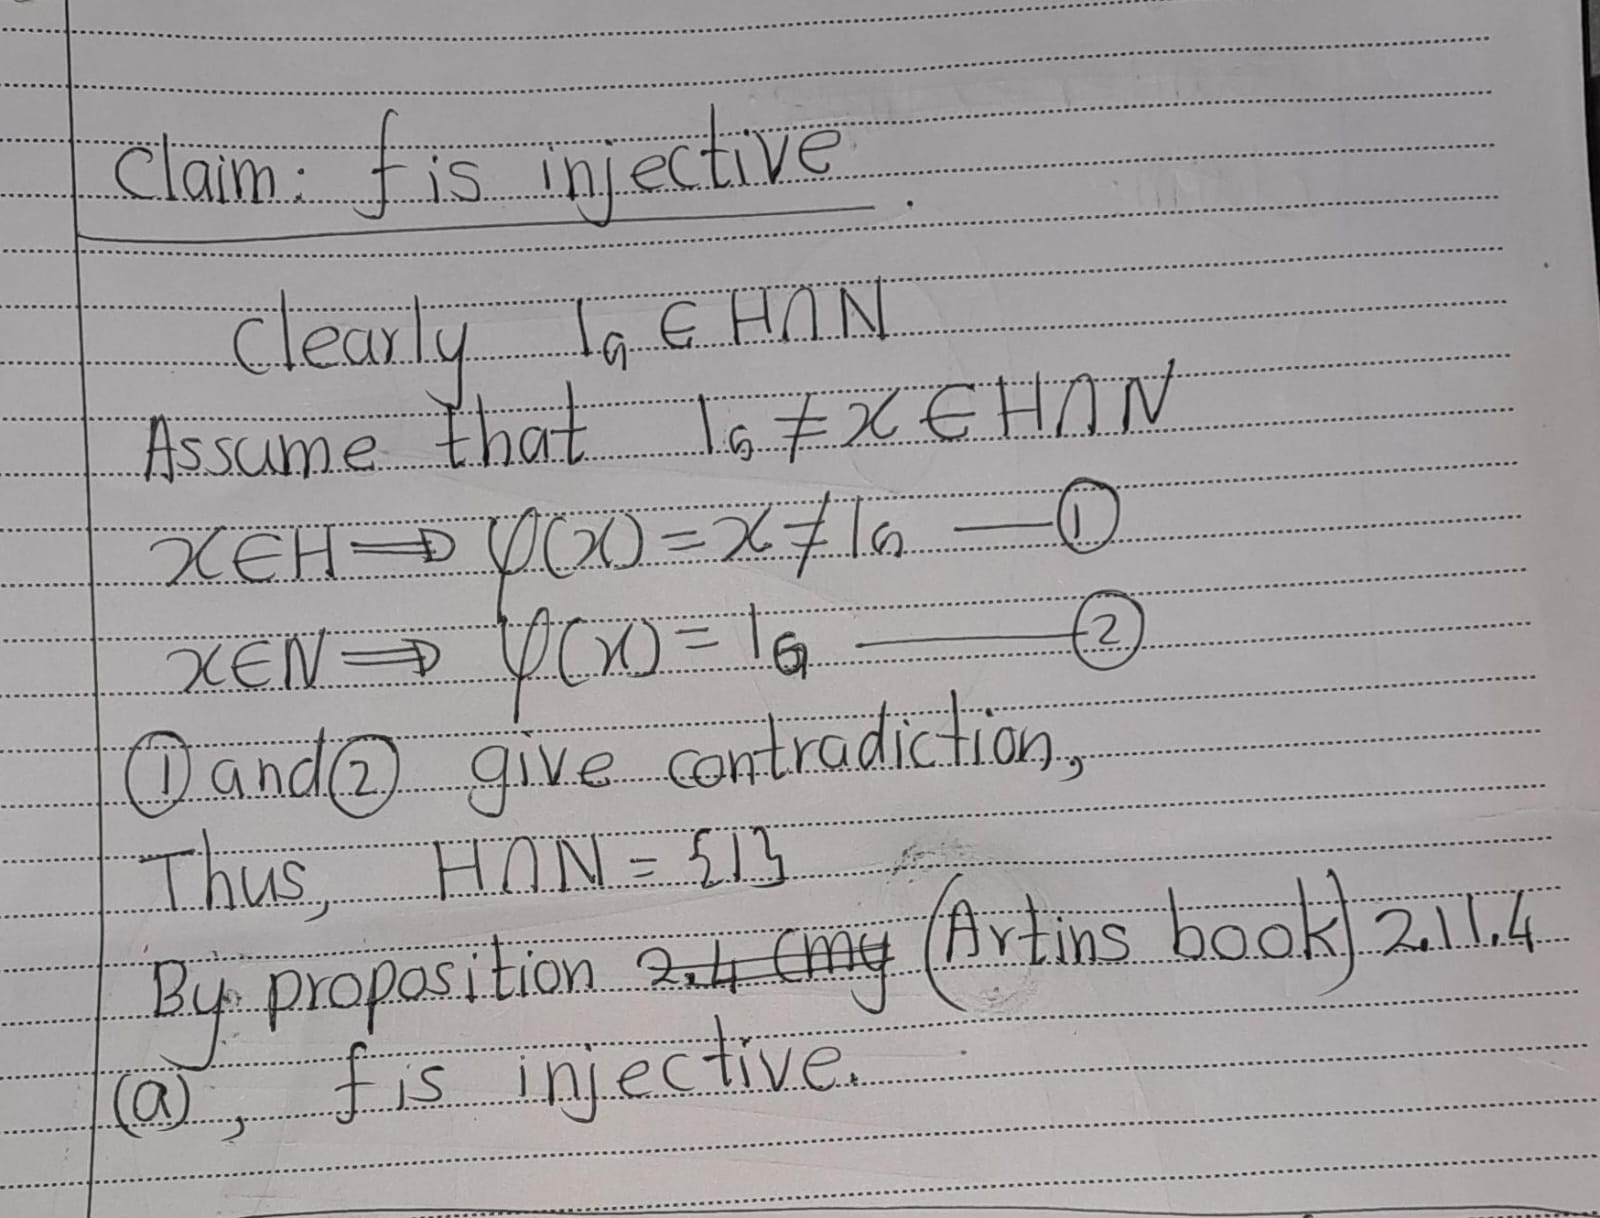 Claim: f is injective.
Clearly 1_G ∈ H∩N
Assume that 1_G ≠ x ∈ H∩N
x∈H ⇒ φ(x) = x ≠ 1_G — ①
x∈N ⇒ φ(x) = 1_G — ②
① and ② give contradiction,
Thus, H∩N = {1}
By proposition 2.4 (my (Artins book) 2.11.4
(a), f is injective.